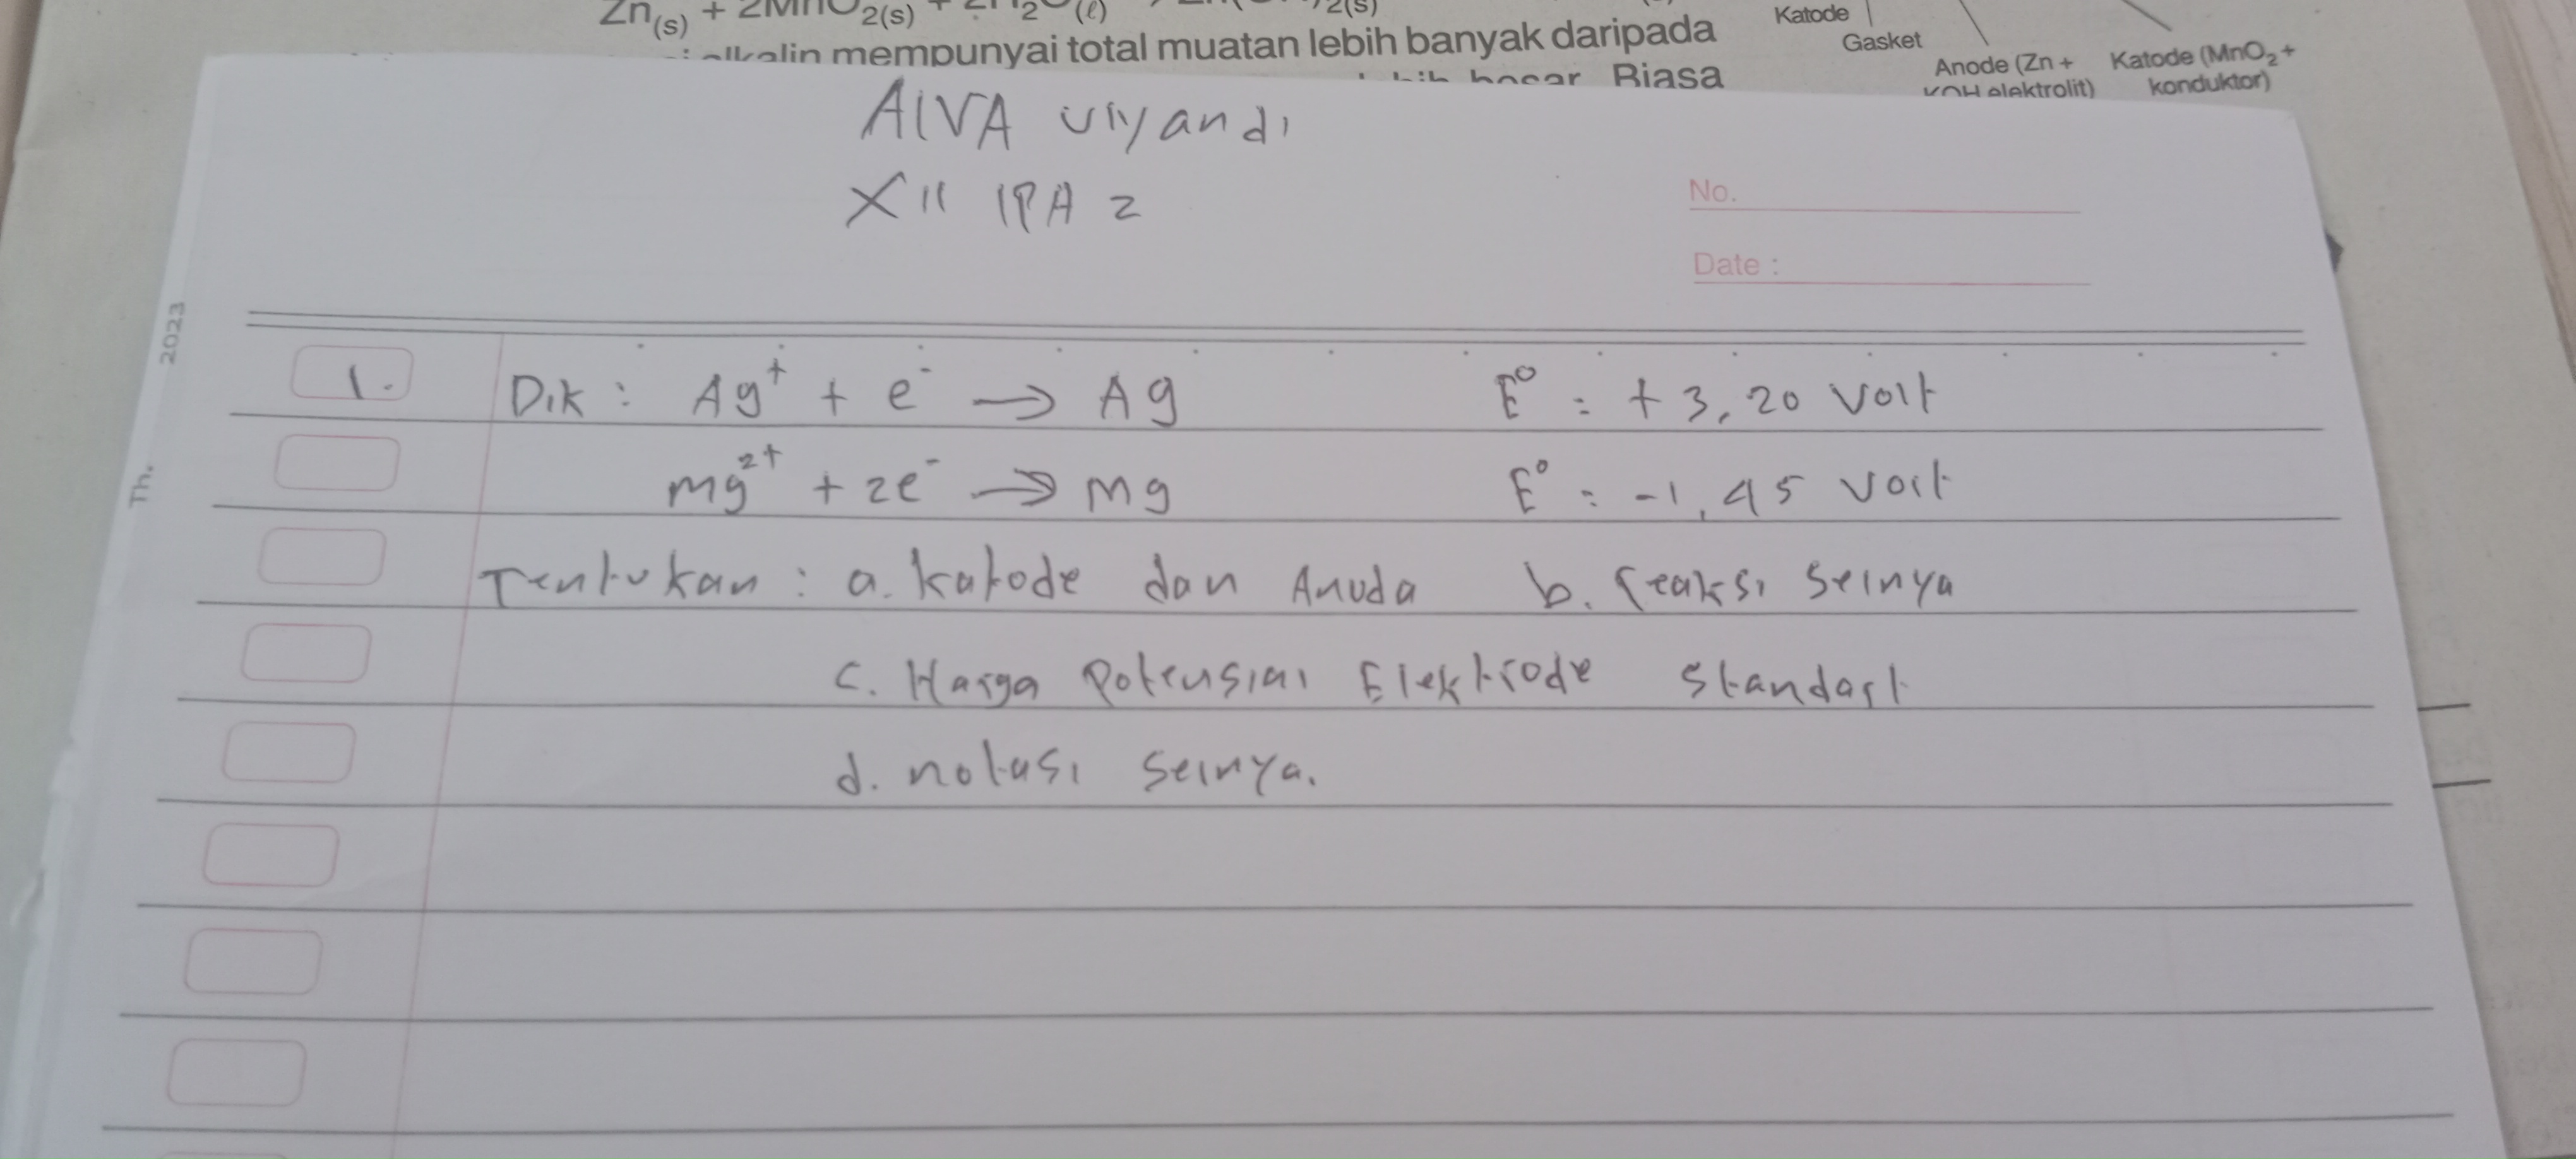 Zn(s) + 2MnO2(s) +
alkalin mempunyai total muatan lebih banyak daripada
Biasa
Katode
Gasket
Anode (Zn +
KOH elektrolit)
Katode (MnO2 +
konduktor)
AlVA viyandi
XII IPA 2
No.
Date :
Th. 2023
1. Dik : Ag⁺ + e⁻ → Ag E° = +3,20 Volt
mg²⁺ + 2e⁻ → mg E° = -1,45 Volt
Tentukan : a. katode dan Anoda b. reaksi selnya
c. Harga Potensial Elektrode Standart
d. notasi selnya.